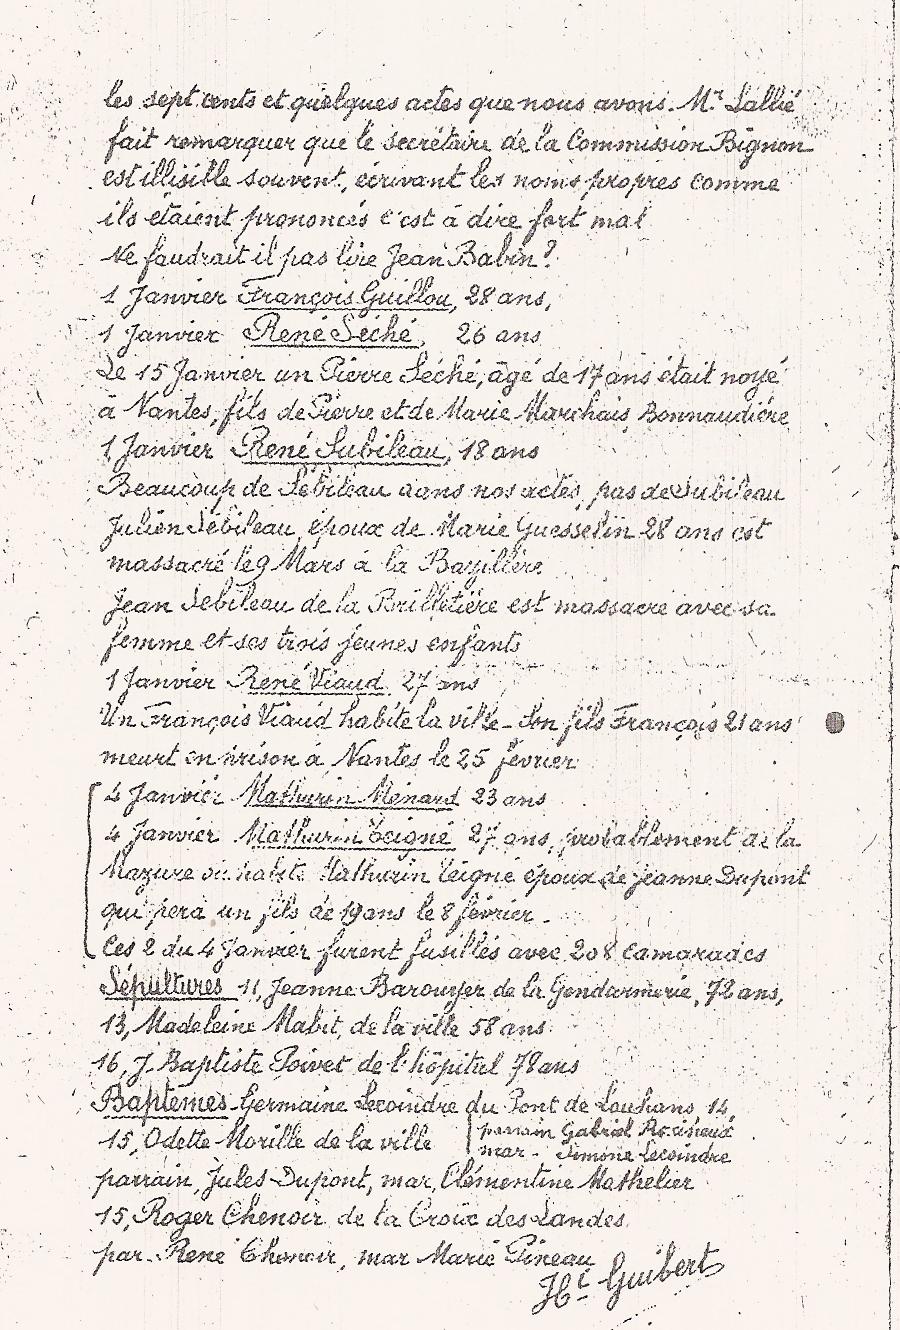 les sept cents et quelques actes que nous avons. Mr Lallié
fait remarquer que le secrétaire de la Commission Bignon
est illisible souvent, écrivant les noms propres comme
ils étaient prononcés c'est à dire fort mal
Ne faudrait il pas lire Jean Babin?
1 Janvier François Guillou, 28 ans,
1 Janvier René Séché, 26 ans
Le 15 Janvier un Pierre Séché, âgé de 17 ans était noyé
à Nantes, fils de Pierre et de Marie Marchais, Bonnaudière
1 Janvier René Subileau, 18 ans
Beaucoup de Sébileau dans nos actes, pas de Subileau
Julien Sébileau, époux de Marie Guesselin 28 ans est
massacré le 9 Mars à la Bazillère
Jean Sebileau de la Brilletière est massacré avec sa
femme et ses trois jeunes enfants
1 Janvier René Viaud, 27 ans
Un François Viaud habite la ville - Son fils François 21 ans
meurt en prison à Nantes le 25 février
4 Janvier Mathurin Ménard 23 ans
4 Janvier Mathurin Teigné 27 ans, probablement de la
Mazure où habite Mathurin Teigné époux de Jeanne Dupont
qui pera un fils de 19 ans le 8 février -
Ces 2 du 4 Janvier furent fusillés avec 208 camarades
Sépultures 11, Jeanne Barouyer de la Gendarmerie, 72 ans,
13, Madeleine Mabit, de la ville 58 ans
16, J. Baptiste Poivet de l'hôpital 78 ans
Baptêmes - Germaine Lecoindre du Pont de Louhans, 14,
parrain Gabriel
mar - Simone Lecoindre
15, Odette Morille de la ville
parrain, Jules Dupont, mar, Clémentine Mathelier
15, Roger Chenoir de la Croix des Landes
par. René Chenoir, mar Marie Pineau
Ht Guibert